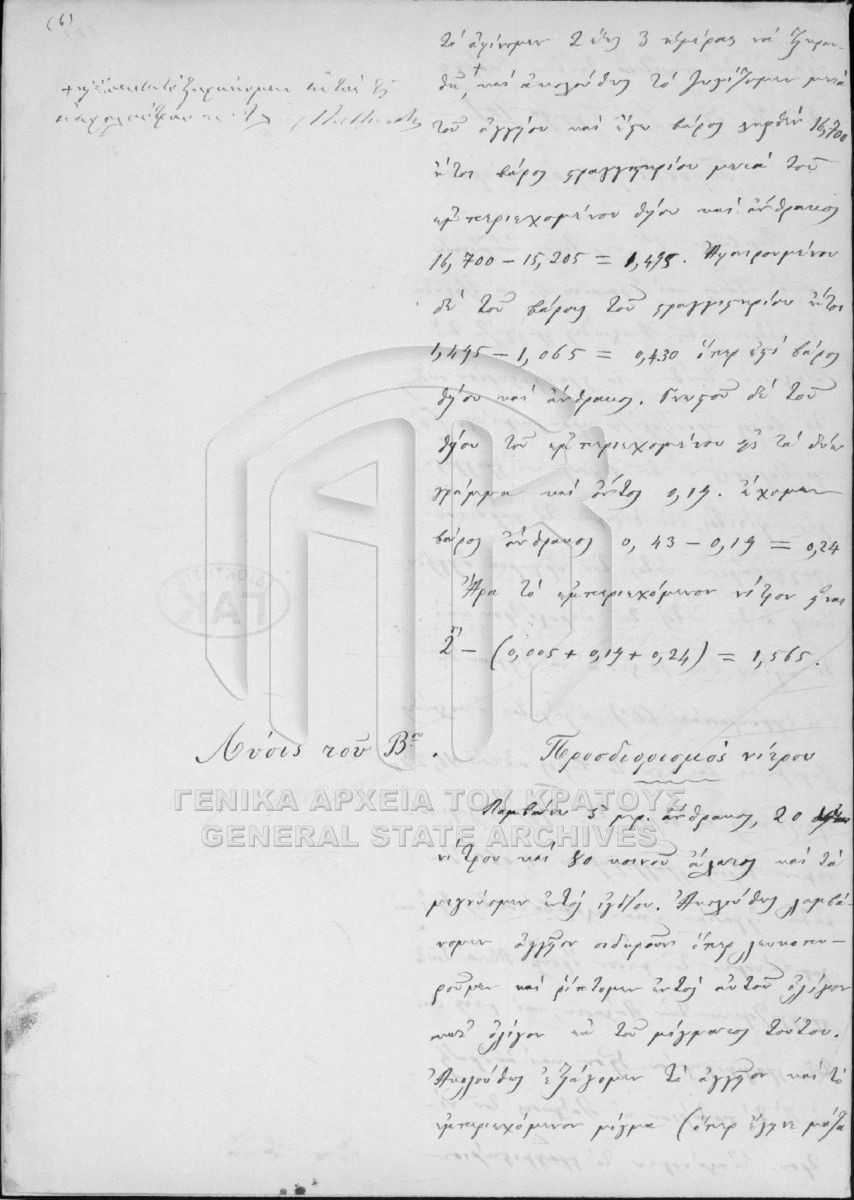 (6)
τὸ ἀφίνομεν 2 ἕως 3 ἡμέρας νὰ ξηραν-
θῇ, + καὶ ἀκολούθως τὸ ζυγίζομεν μετὰ
τοῦ ἀγγείου καὶ ἔστω βάρος ληφθὲν 16,700
ἤτοι βάρος στραγγιστηρίου μετὰ τοῦ
ἐμπεριεχομένου θείου καὶ ἄνθρακος
16,700 – 15,205 = 1,495. Ἀφαιρουμένου
δὲ τοῦ βάρους τοῦ στραγγιστηρίου ἤτοι
1,495 – 1,065 = 0,430 ὅπερ ἐστί βάρος
θείου καὶ ἄνθρακος. Γνωστοῦ δὲ τοῦ
θείου τοῦ ἐμπεριεχομένου εἰς τὰ δύω
γράμμα καὶ ὄντος 0,19. ἔχομεν
βάρος ἄνθρακος 0,43 – 0,19 = 0,24
Ἄρα τὸ ἐμπεριεχόμενον νίτρον εἶναι
2 – (0,005 + 0,19 + 0,24) = 1,565.
Λύσις τοῦ Βου.
Προσδιορισμὸς νίτρου
Λαμβάνω 5 γρ. ἄνθρακος, 20
νίτρου καὶ 80 κοινοῦ ἅλατος καὶ τὰ
μιγνύομεν ἐντὸς ἰγδίου. Ἀκολούθως λαμβά-
νομεν ἀγγεῖον σιδηροῦν ὅπερ λευκοπυ-
ροῦμεν καὶ ρίπτομεν ἐντὸς αὐτοῦ ὀλίγον
κατ' ὀλίγον ἐκ τοῦ μίγματος τούτου.
Ἀκολούθως ἐξάγομεν τὸ ἀγγεῖον καὶ τὸ
ἐμπεριεχόμενον μίγμα (ὅπερ ἔγινε μάζα
ΓΕΝΙΚΑ ΑΡΧΕΙΑ ΤΟΥ ΚΡΑΤΟΥΣ
GENERAL STATE ARCHIVES
ΓΑΚ